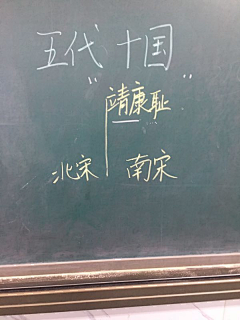 五代十国
"靖康耻"
北宋 南宋